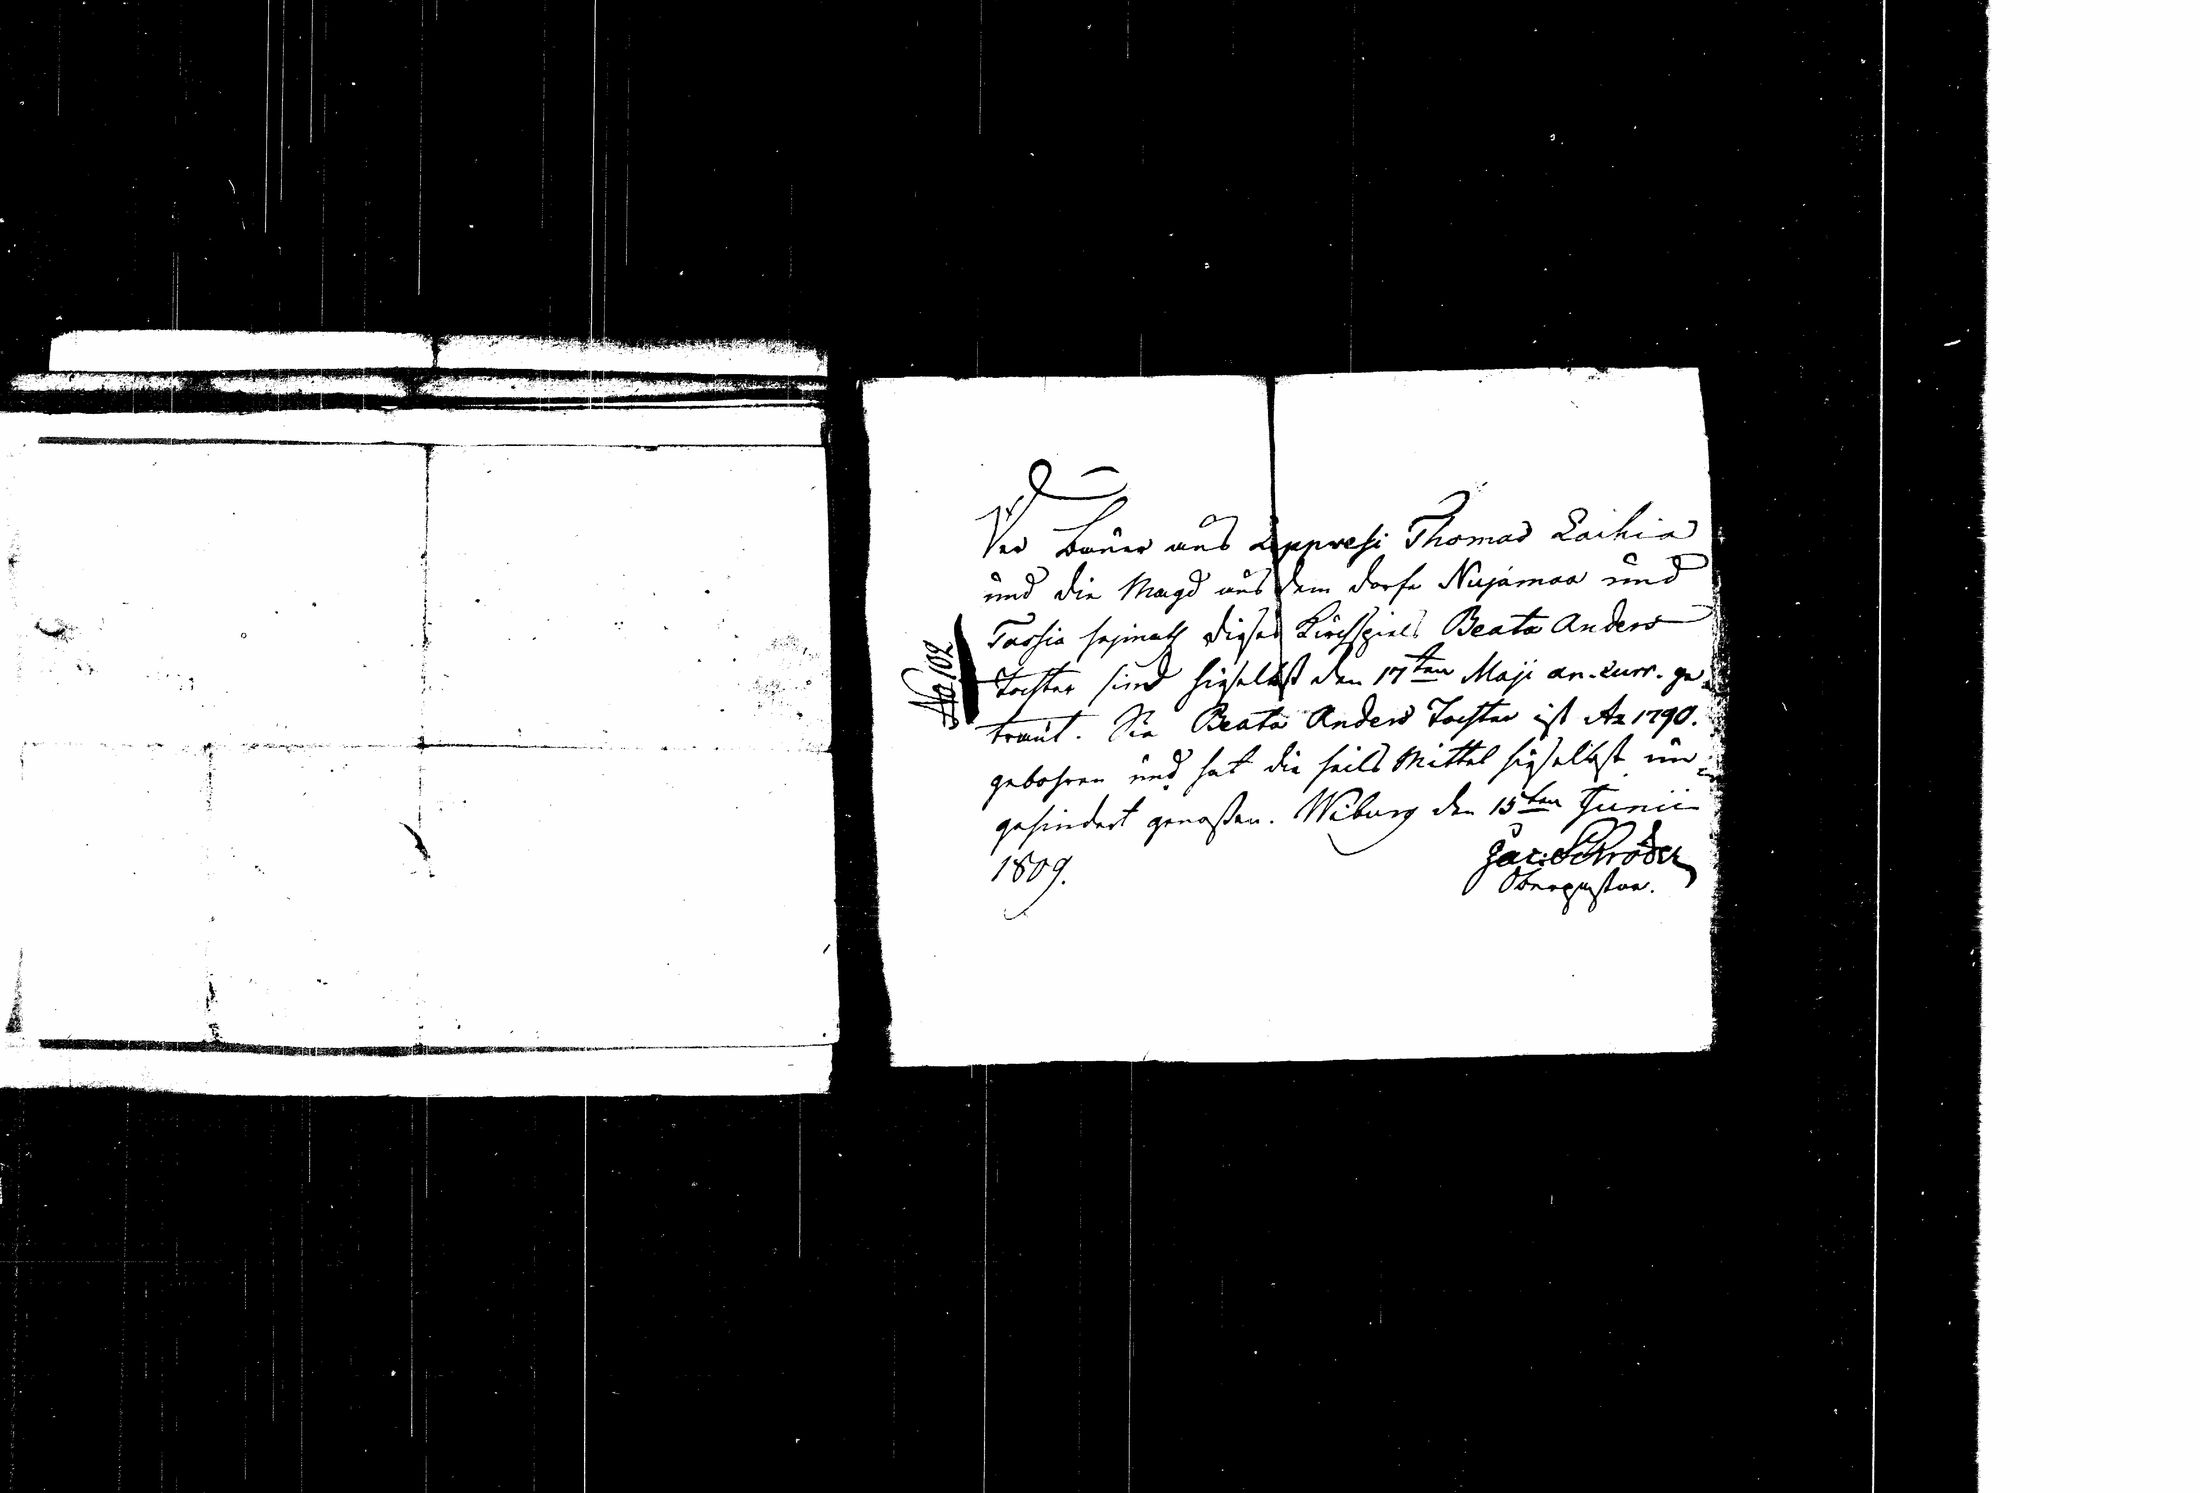 No 102
Der Bauer aus Lippvesi Thomas Laihia
und die Magd aus dem Dorfe Nujamaa und
Tassia heimath dieses Kirchspiels Beata Anders
Tochter sind hieselbst den 17ten Maji an. curr. ge-
traut. Die Beata Anders Tochter ist Ao 1790.
gebohren und hat die heils Mittel hieselbst un-
gehindert genossen. Wiburg den 15ten Junii
1809.
Jac: Schröder
Oberpastor.